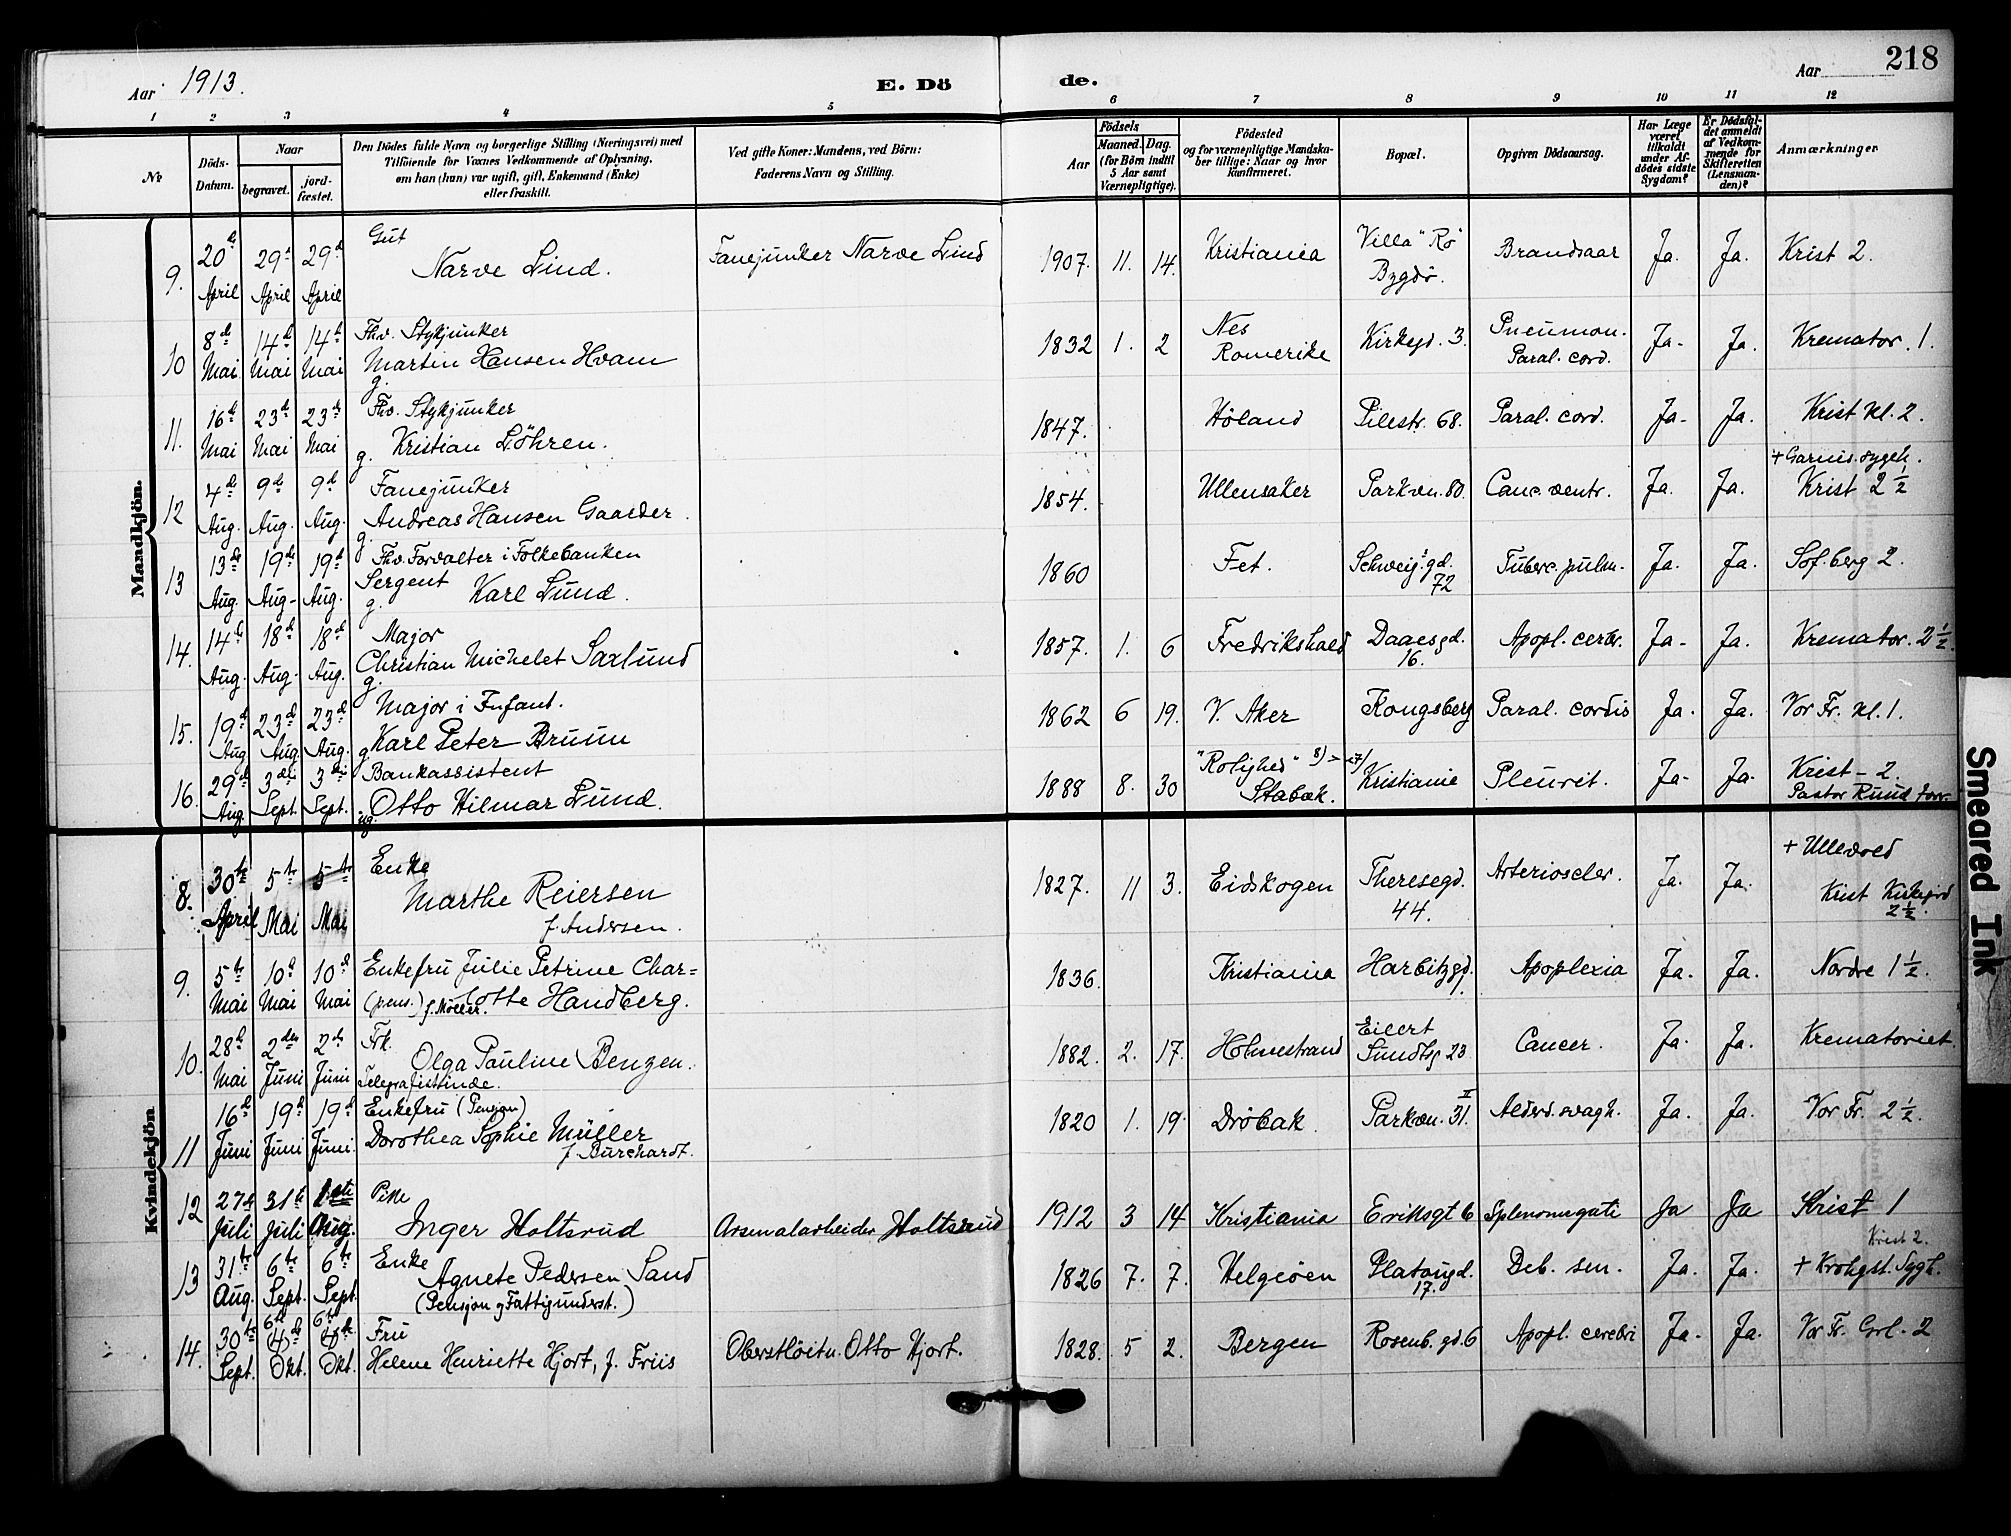 218
Aar 1913.
E. Dö
de.
Aar
1 2 3 4 5 6 7 8 9 10 11 12
Nr
Döds-Datum.
Naar
begravet.
jord-fæstet.
Den Dödes fulde Navn og borgerlige Stilling (Næringsvei) med
Tilföiende for Voxnes Vedkommende af Oplysning,
om han (hun) var ugift, gift, Enkemand (Enke)
eller fraskilt.
Ved gifte Koner: Mandens, ved Börn:
Faderens Navn og Stilling.
Födsels
Aar
Maaned. Dag.
(for Börn indtil
5 Aar samt
Værnepligtige).
Födested
og for værnepligtige Mandska-
ber tillige: Naar og hvor
konfirmeret.
Bopæl.
Opgiven Dödsaarsag.
Har Læge
været
tilkaldt
under Af-
dödes sidste
Sygdom?
Er Dödsfal-
det anmeldt
af Vedkom-
mende for
Skifteretten
(Lensman-
den)?
Anmærkninger
Mandkjön.
9. 20de April 29de April 29de April Gut Narve Lind. Fanejunker Narve Lind 1907. 11. 14. Kristiania Villa "Rö" Bygdö. Brandsaar Ja. Ja. Krist 2.
10 8de Mai 14de Mai 14de Mai Fhv. Stykjunker Martin Hansen Hvam g. 1832 1. 2 Nes Romerike Kirkegd. 3. Pneumon. Paral. cord. Ja- Ja. Kremator. 1.
11. 16de Mai 23de Mai 23de Mai Fhv. Stykjunker g. Kristian Löhren. 1847. Höland Pilestr. 68. Paral. cord. Ja- Ja. Krist kl. 2.
12 4de Aug. 9de Aug. 9de Aug. Fanejunker Andreas Hansen Gaarder. g. 1854. Ullensaker Parkvn. 80. Canc. ventr. Ja. Ja. + Garnis. sygeh. Krist 2 1/2
13 13de Aug. 19de Aug- 19de Aug. Fhv. Forvalter i Folkebanken Sergent Karl Lund. g. 1860 Fet. Schweig.gd. 72 Tuberc. pulm. Ja. Ja. Sof.berg 2.
14. 14de Aug. 18de Aug. 18de Aug. Major Christian Michelet Saxlund g. 1857. 1. 6 Fredrikshald Daaesgd. 16. Apopl. cerbr. Ja- Ja. Kremator. 2 1/2.
15. 19de Aug 23de Aug. 23de Aug. Major i Infant. g Karl Peter Bruun 1862 6 19. V. Aker Kongsberg Paral. cordis Ja. Ja. Vor Fr. kl. 1.
16. 29de Aug. 3die Sept. 3die Sept. Bankassistent Otto Hilmar Lund. ug. 1888 8. 30 "Rolighed" Stabæk. Kristiania Pleurit. Ja- Ja. Krist- 2. Pastor Ruud forr.
Kvindekjön.
8. 30te April 5te Mai 5te Mai Enke Marthe Reiersen f. Andersen. 1827. 11 3. Eidskogen Theresegd. 44. Arterioscler. Ja. Ja. + Ullevold Krist Kirkegrd 2 1/2.
9. 5te Mai 10de Mai 10de Mai Enkefru Julie Petrine Char=
(pens.) f. Möller. lotte Handberg. 1836. Kristiania Harbitzgd. 1. Apoplexia Ja. Ja. Nordre 1 1/2.
10. 28de Mai 2den Juni 2den Juni Frk. Olga Pauline Benzen. Telegrafistinde. 1882. 2. 17. Holmestrand Eilert Sundtsg 23. Cancer. Ja. Ja. Krematoriet
11 16de Juni 19de Juni 19de Juni Enkefru (Pensjon) Dorothea Sophie Müller f. Burchardt. 1820 1. 19. Dröbak Parkvn. 31. II Alderd. svagh. Ja. Ja. Vor Fr. 2 1/2.
12 27de Juli 31te Juli 1ste Aug. Pike Inger Holtsrud Arsenalarbeider Holtsrud 1912 3 14 Kristiania Eriksgt 6 Splenomegati Ja Ja Krist 1
13 31te Aug. 6te Sept. 6te Sept. Enke Agnete Pedersen Sand (Pensjon og Fattigunderst.) 1826 7. 7. Helgeöen Platougd. 17. Deb. sen. Ja. Ja. Krist 2. + Krohgst. Sygh.
14. 30te Sept. 6te 4de Okt. 6te 4de Okt. Fru Helene Henriette Hjort, f. Friis Oberstlöitn. Otto Hjort. 1828. 5 2. Bergen Rosenb. gd. 6 Apopl. cerebri Ja. Ja. Vor Fr. Grl. 2
Smeared Ink